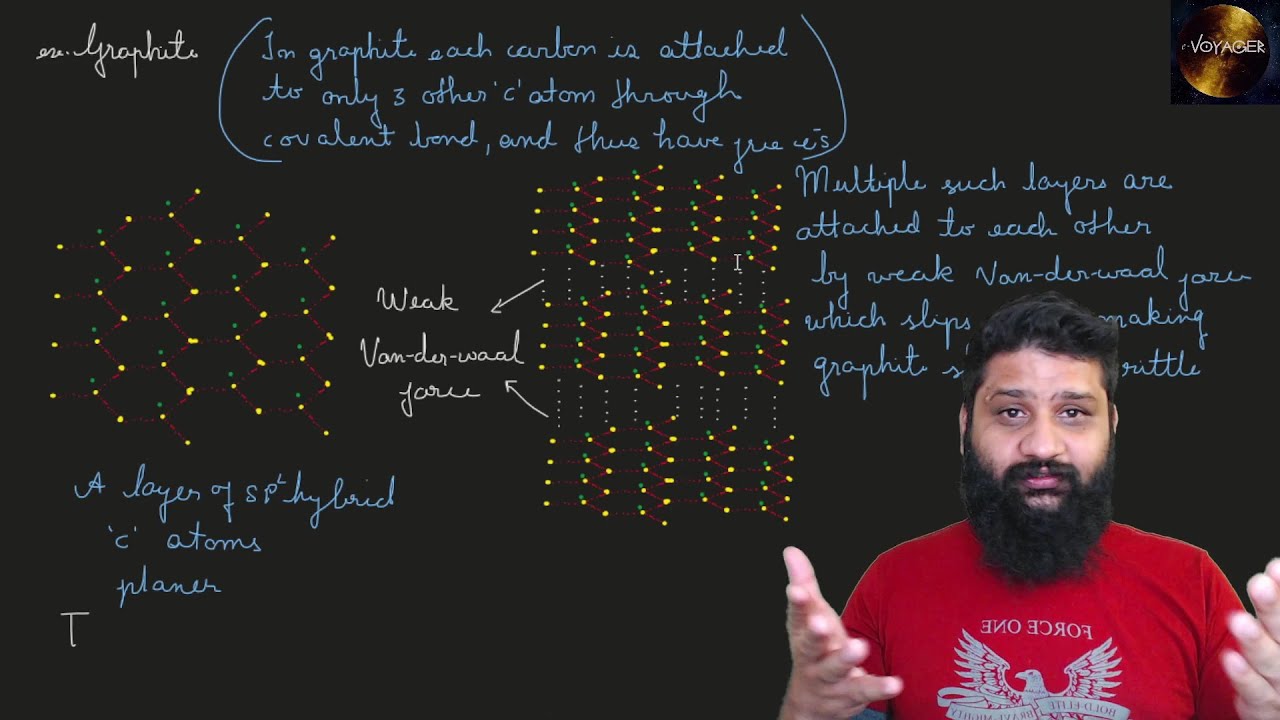 ex. Graphite
In graphite each carbon is attached
to only 3 other 'c' atom through
covalent bond, and thus have free e⁻s
Multiple such layers are
attached to each other
by weak Van-der-waal force
which slips making
graphite
Weak
Van-der-waal
force
A layer of SP² hybrid
'c' atoms
planer
T
e-VOYAGER
FORCE ONE
BOLD-ELITE
BRAVE-MIGHTY